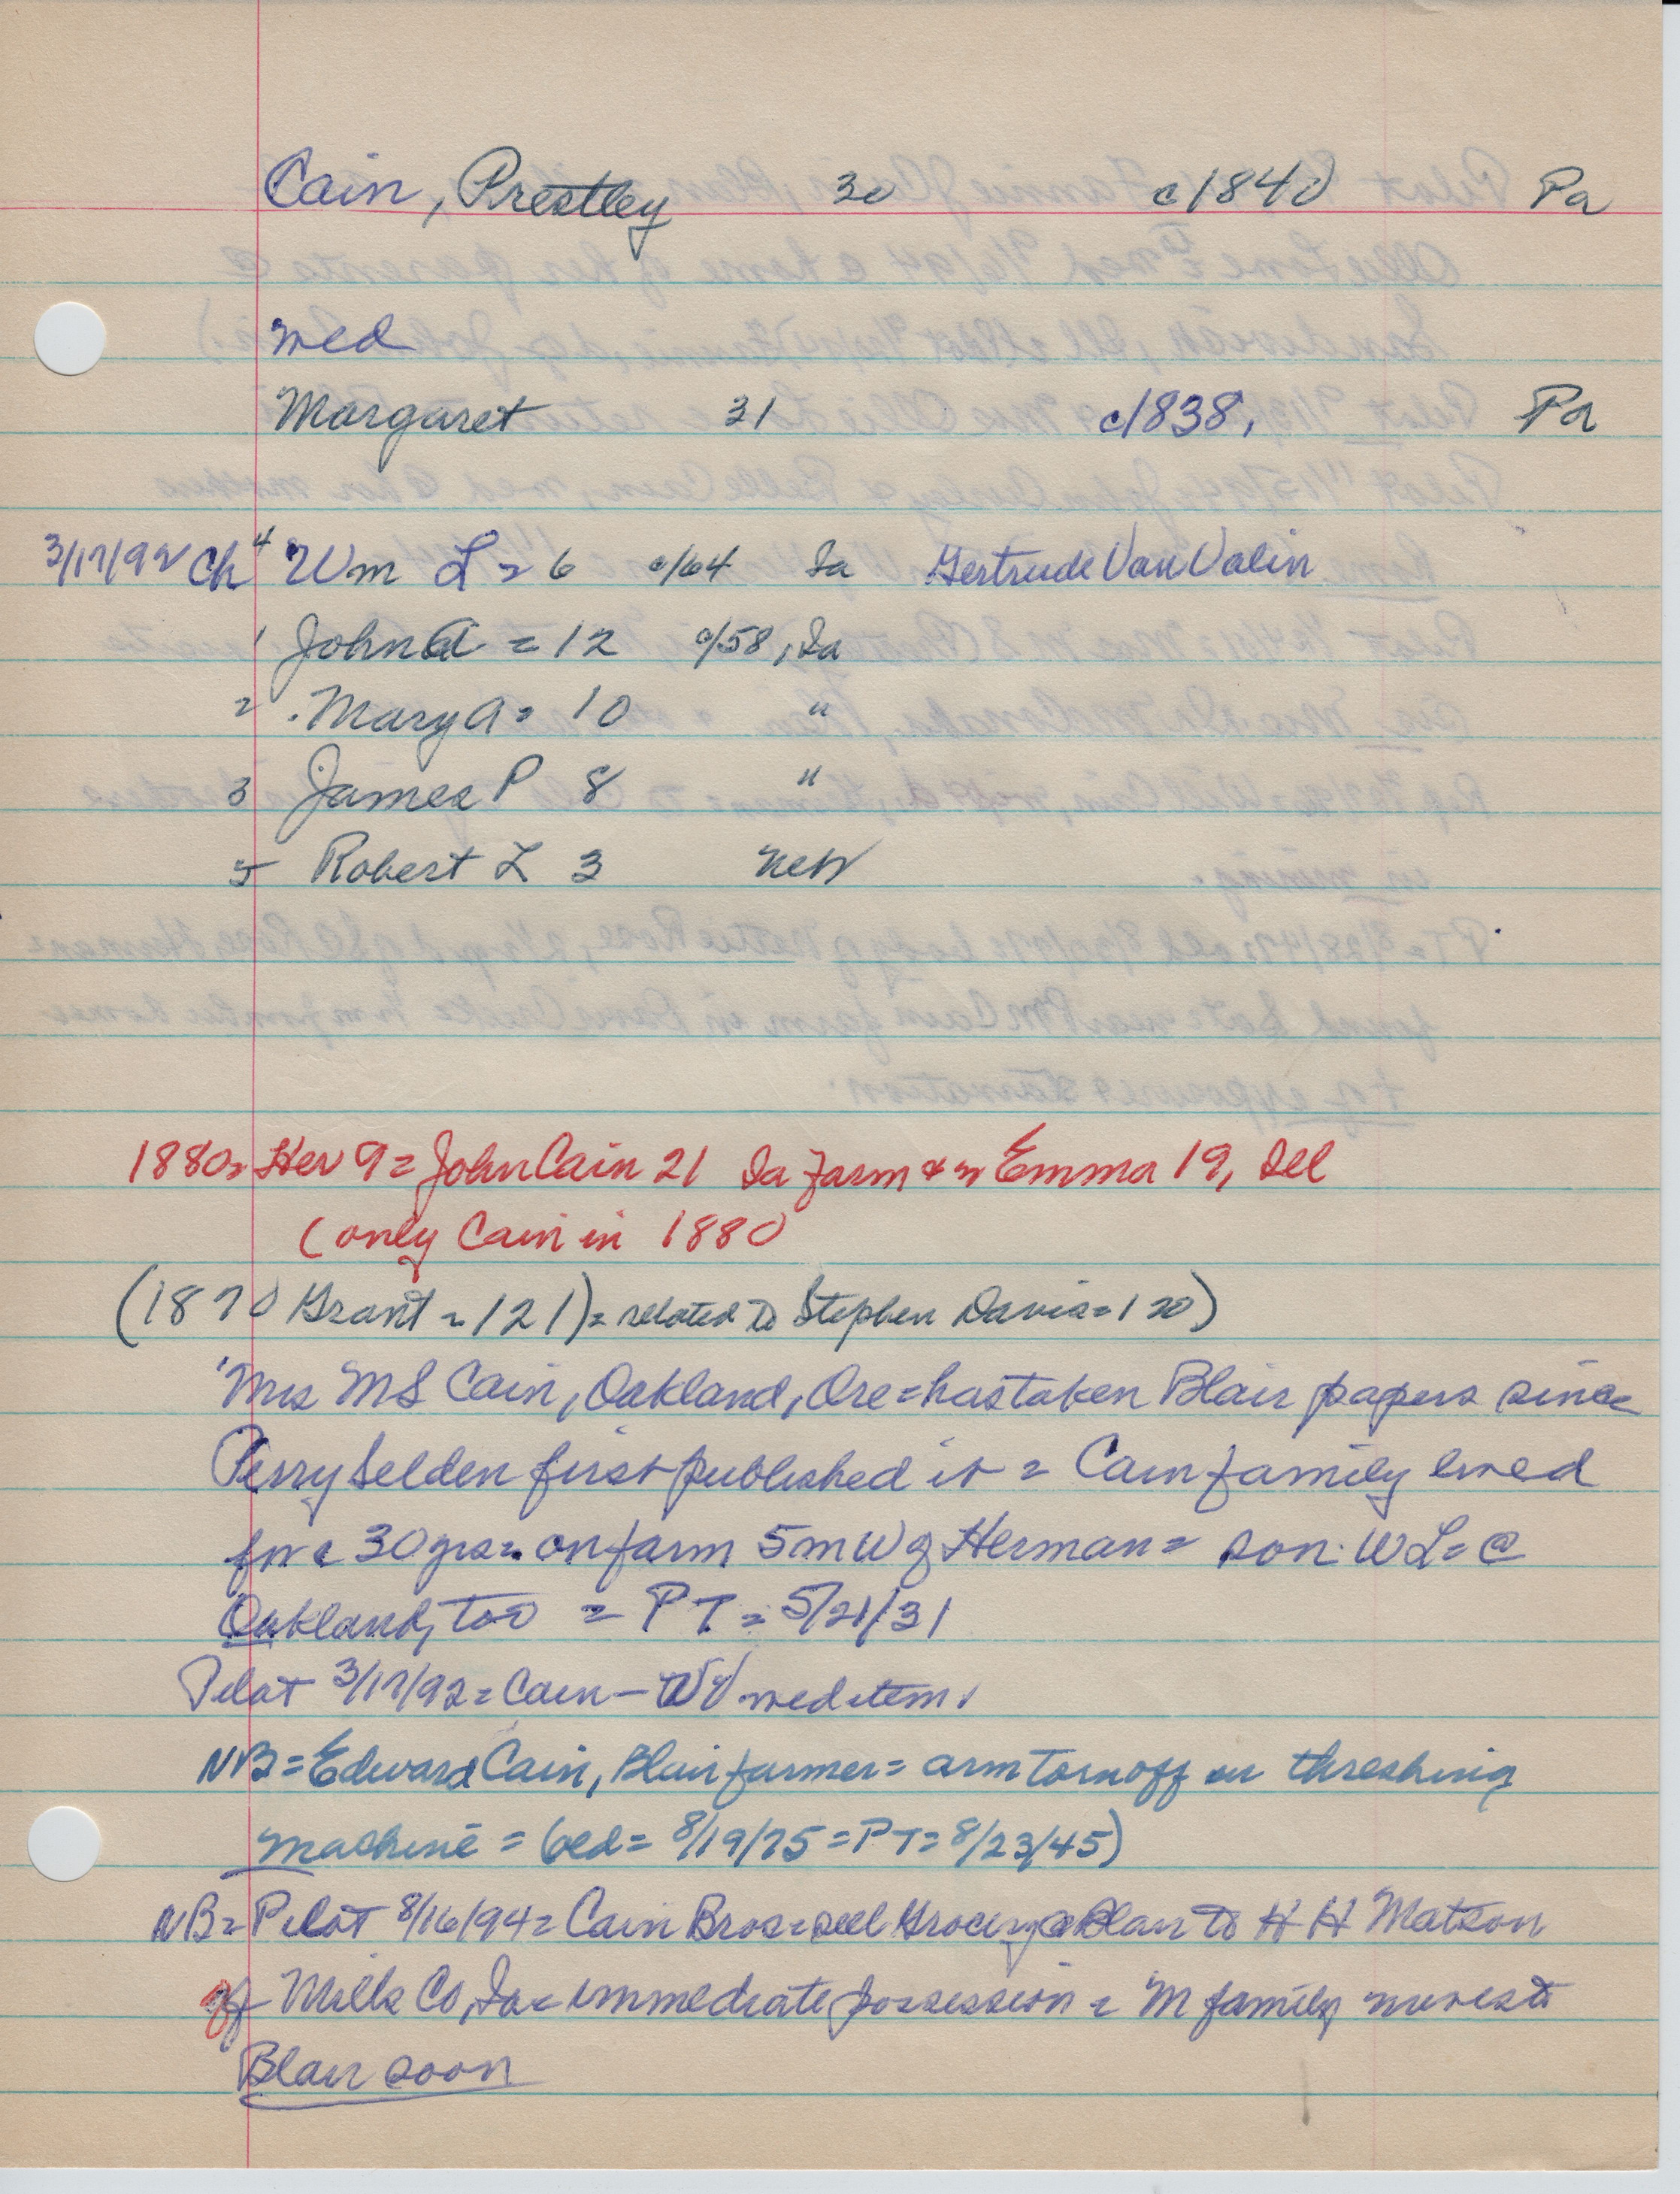 Cain, Prestley 30 c1840 Pa
med
Margaret 31 c1838, Pa
3/17/92 Ch 4 Wm L = 6 c/64 Ia Gertrude Van Valin
1 John A = 12 c/58, Ia
2 . Mary A = 10 "
3 James P 8 "
5 Robert L 3 Neb
1880 = Her 9 = John Cain 21 Ia farm & w Emma 19, Ill
(only Cain in 1880
(1870 Grant = 121) = related to Stephen Davis = 120)
Mrs MS Cain, Oakland, Ore = has taken Blair papers since
Perry Selden first published it = Cain family lived
for c 30 yrs = on farm 5 m W of Herman = son WL = @
Oakland, too = PT = 5/21/31
Pilot 3/17/92 = Cain - VV med item.
NB = Edward Cain, Blair farmer = arm torn off in threshing
machine = (old = 8/19/75 = PT = 8/23/45)
NB = Pilot 8/16/94 = Cain Bros = sell Grocery @ Blair to H H Matson
of Mills Co, Ia = immediate possession = M family moves to
Blair soon